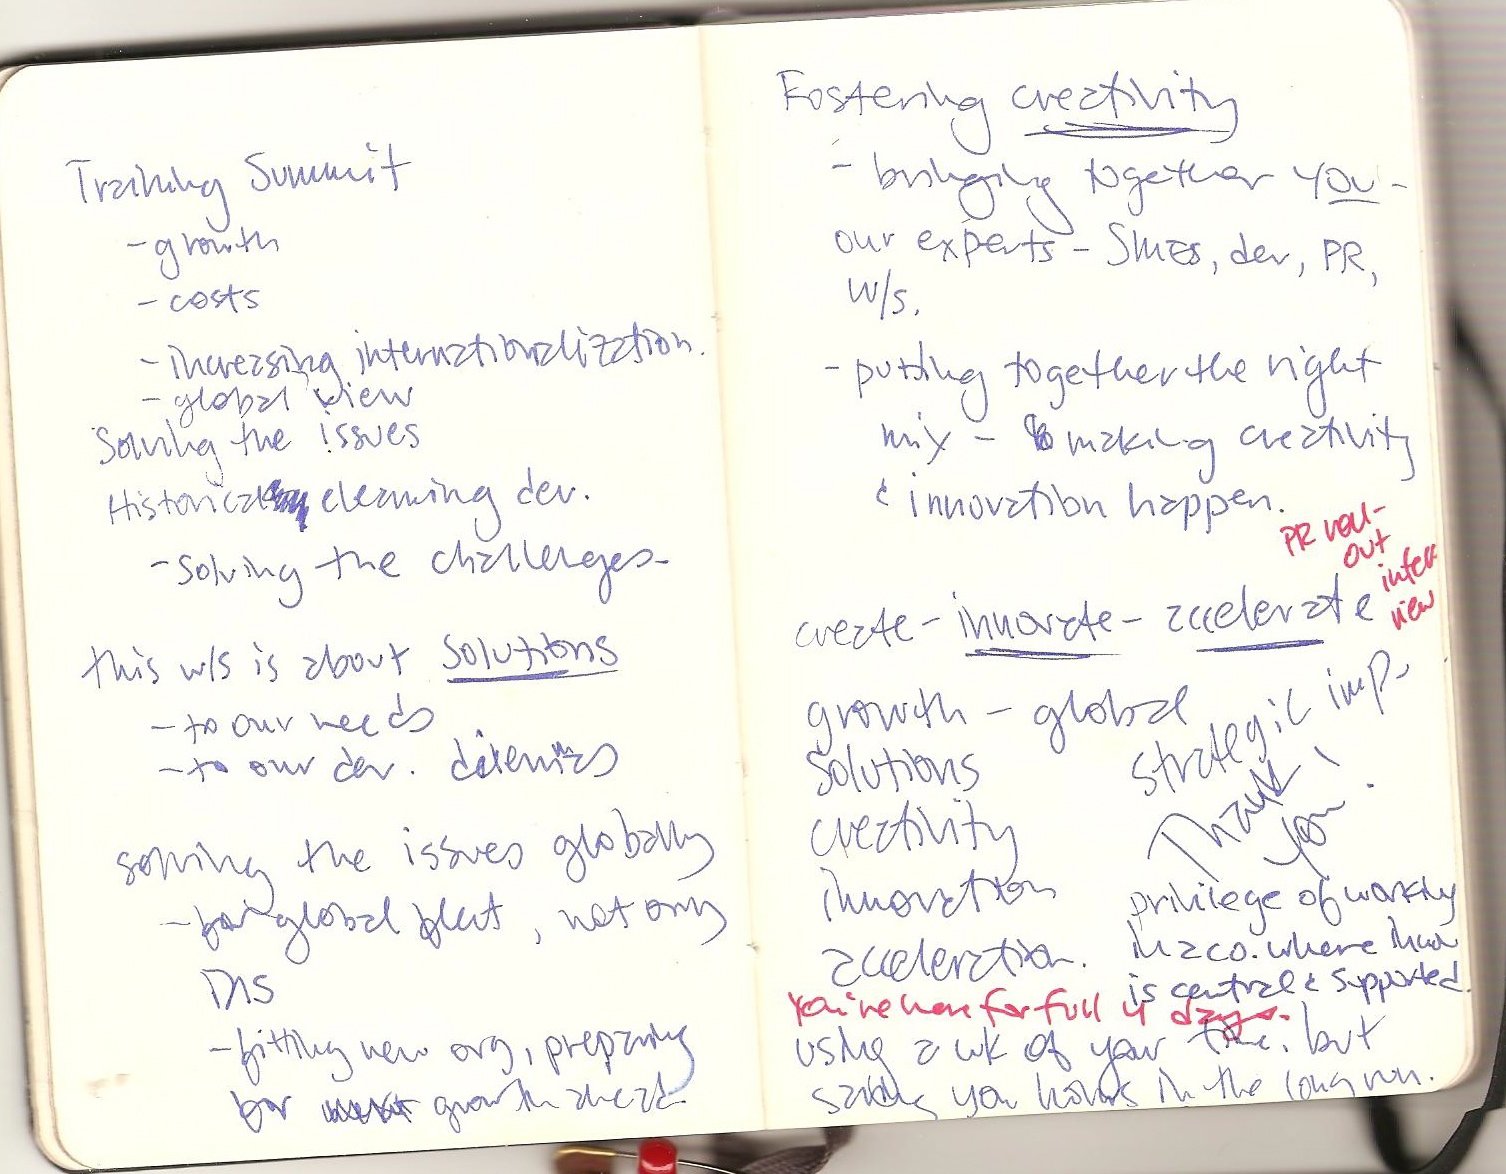 Training Summit
- growth
- costs
- increasing internationalization.
- global view
Solving the issues
Historical elearning dev.
- solving the challenges -
this w/s is about solutions
- to our needs
- to our dev. dilemmas
solving the issues globally
- for global plat, not only
DNS
- fitting new org, preparing
for growth ahead.
Fostering creativity
- bringing together you -
our experts - SMEs, dev, PR,
w/s.
- putting together the right
mix - making creativity
& innovation happen.
PR roll-
out
inter
view
create - innovate - accelerate
growth - global
solutions
creativity
innovation
acceleration.
strategic imp.
Thank
you
privilege of working
in a co. where innov
is central & supported.
You're here for full 4 days.
using a wk of your time, but
saving you hours in the long run.